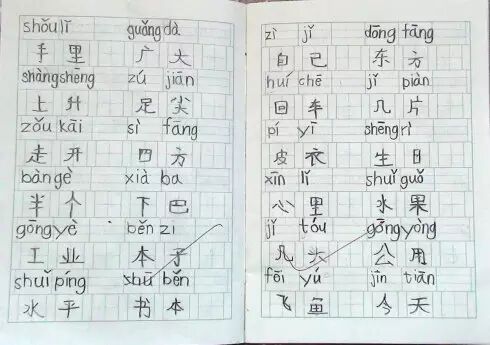 shǒu lǐ guǎng dà
手里 广大
shàng shēng zú jiān
上升 足尖
zǒu kāi sì fāng
走开 四方
bàn gè xià ba
半个 下巴
gōng yè běn zi
工业 本子
shuǐ píng shū běn
水平 书本
zì jǐ dōng fāng
自己 东方
huí chē jǐ piàn
回车 几片
pí yī shēng rì
皮衣 生日
xīn lǐ shuǐ guǒ
心里 水果
jǐ tóu gōng yòng
几头 公用
fēi yú jīn tiān
飞鱼 今天